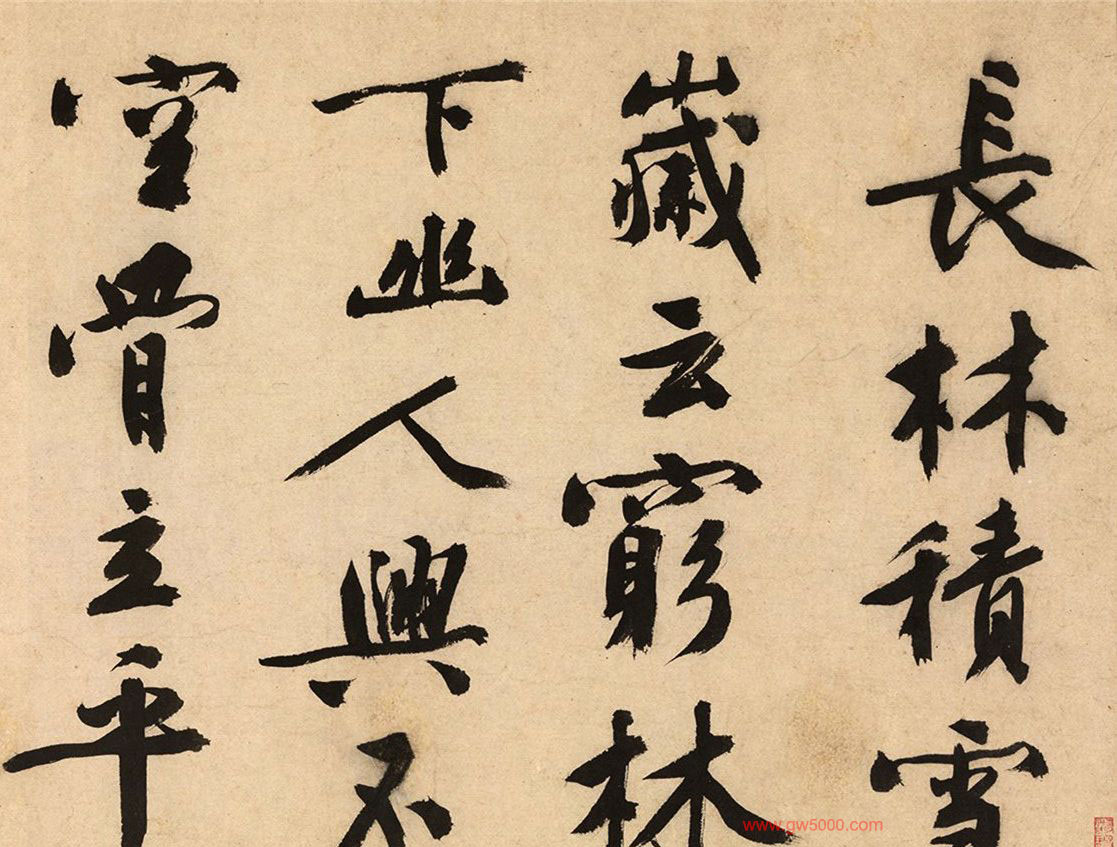 長林積雪
嵗云窮林
下幽人興不
室骨立平
www.gw5000.com